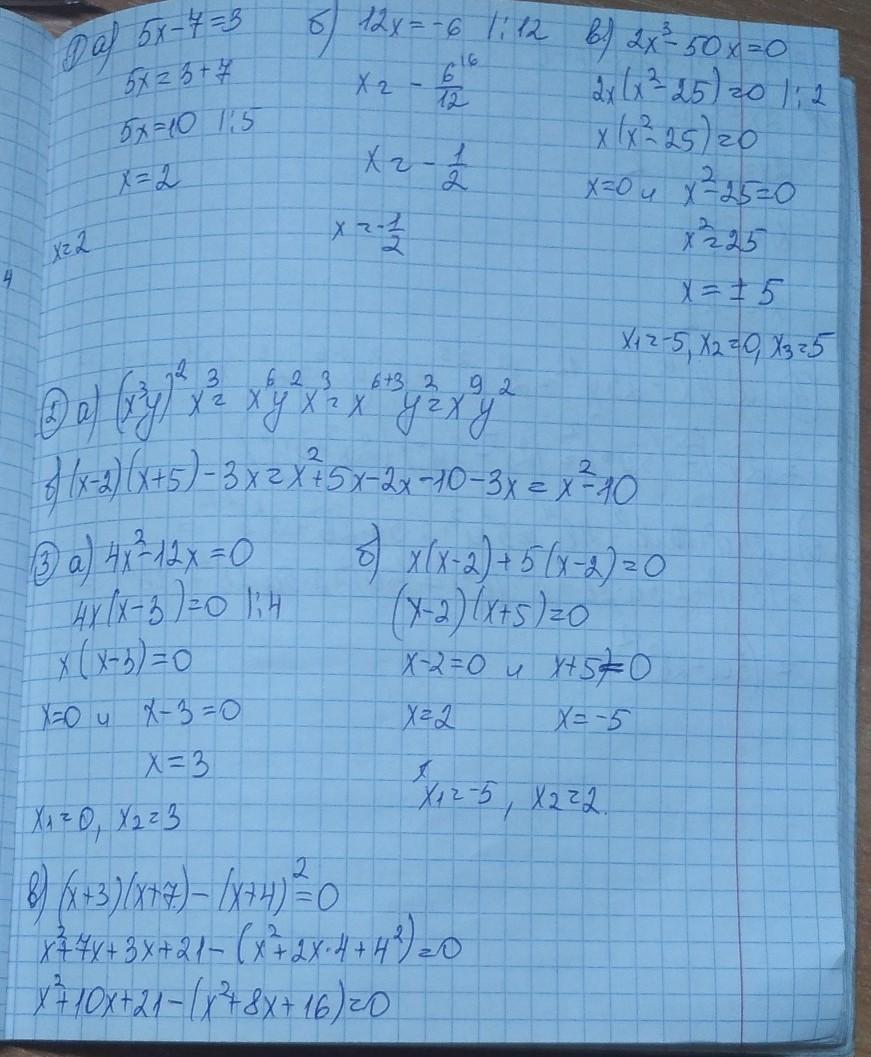 ① а) 5x-7=3
5x=3+7
5x=10 |:5
x=2
x=2
б) 12x=-6 |:12
x=-6/12
x=-1/2
x=-1/2
в) 2x³-50x=0
2x(x²-25)=0 |:2
x(x²-25)=0
x=0 и x²-25=0
x²=25
x=±5
x₁=-5, x₂=0, x₃=5
4
② а) (x³y)²x³=x⁶y²x³=x⁶⁺³y²=x⁹y²
б) (x-2)(x+5)-3x=x²+5x-2x-10-3x=x²-10
③ а) 4x²-12x=0
4x(x-3)=0 |:4
x(x-3)=0
x=0 и x-3=0
x=3
x₁=0, x₂=3
б) x(x-2)+5(x-2)=0
(x-2)(x+5)=0
x-2=0 и x+5=0
x=2 x=-5
x₁=-5, x₂=2.
в) (x+3)(x+7)-(x+4)²=0
x²+7x+3x+21-(x²+2x·4+4²)=0
x²+10x+21-(x²+8x+16)=0